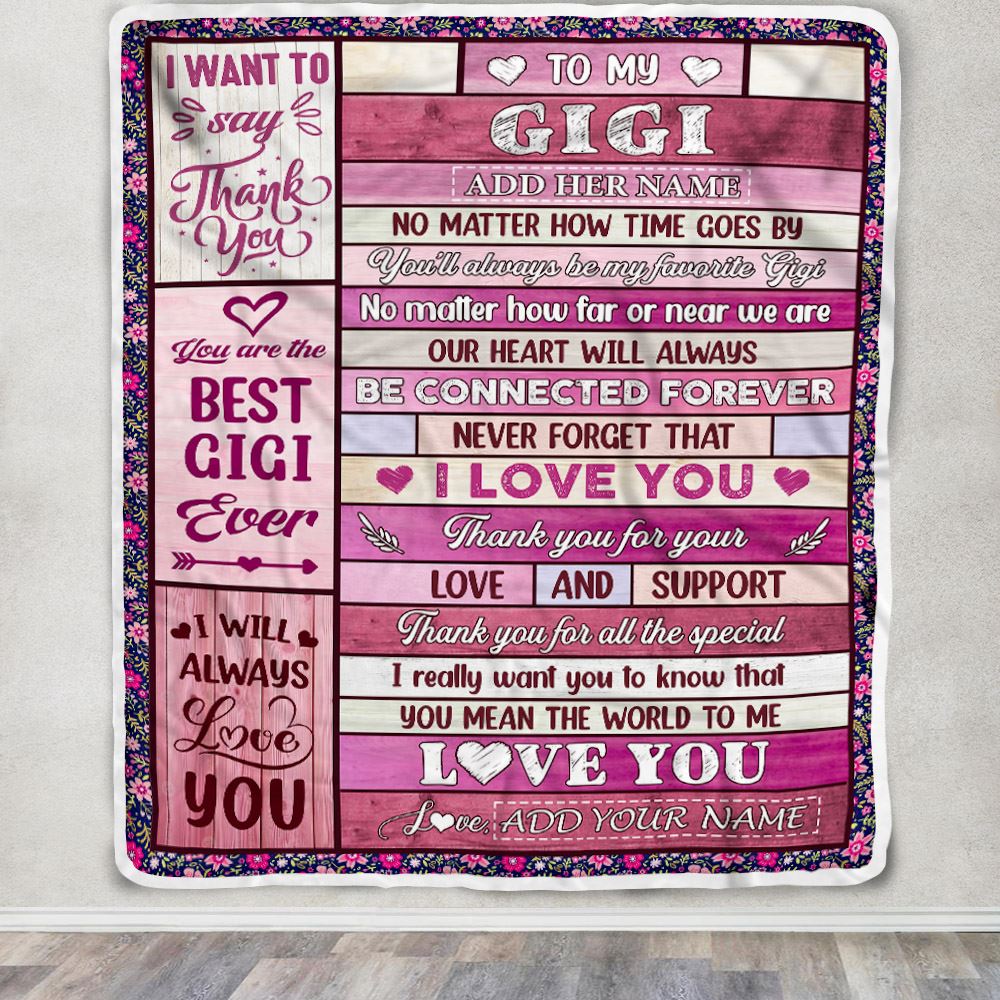 I WANT TO
say
Thank
You
You are the
BEST
GIGI
Ever
I WILL
ALWAYS
Love
YOU
TO MY
GIGI
ADD HER NAME
NO MATTER HOW TIME GOES BY
You'll always be my favorite Gigi
No matter how far or near we are
OUR HEART WILL ALWAYS
BE CONNECTED FOREVER
NEVER FORGET THAT
I LOVE YOU
Thank you for your
LOVE AND SUPPORT
Thank you for all the special
I really want you to know that
YOU MEAN THE WORLD TO ME
LOVE YOU
Love, ADD YOUR NAME